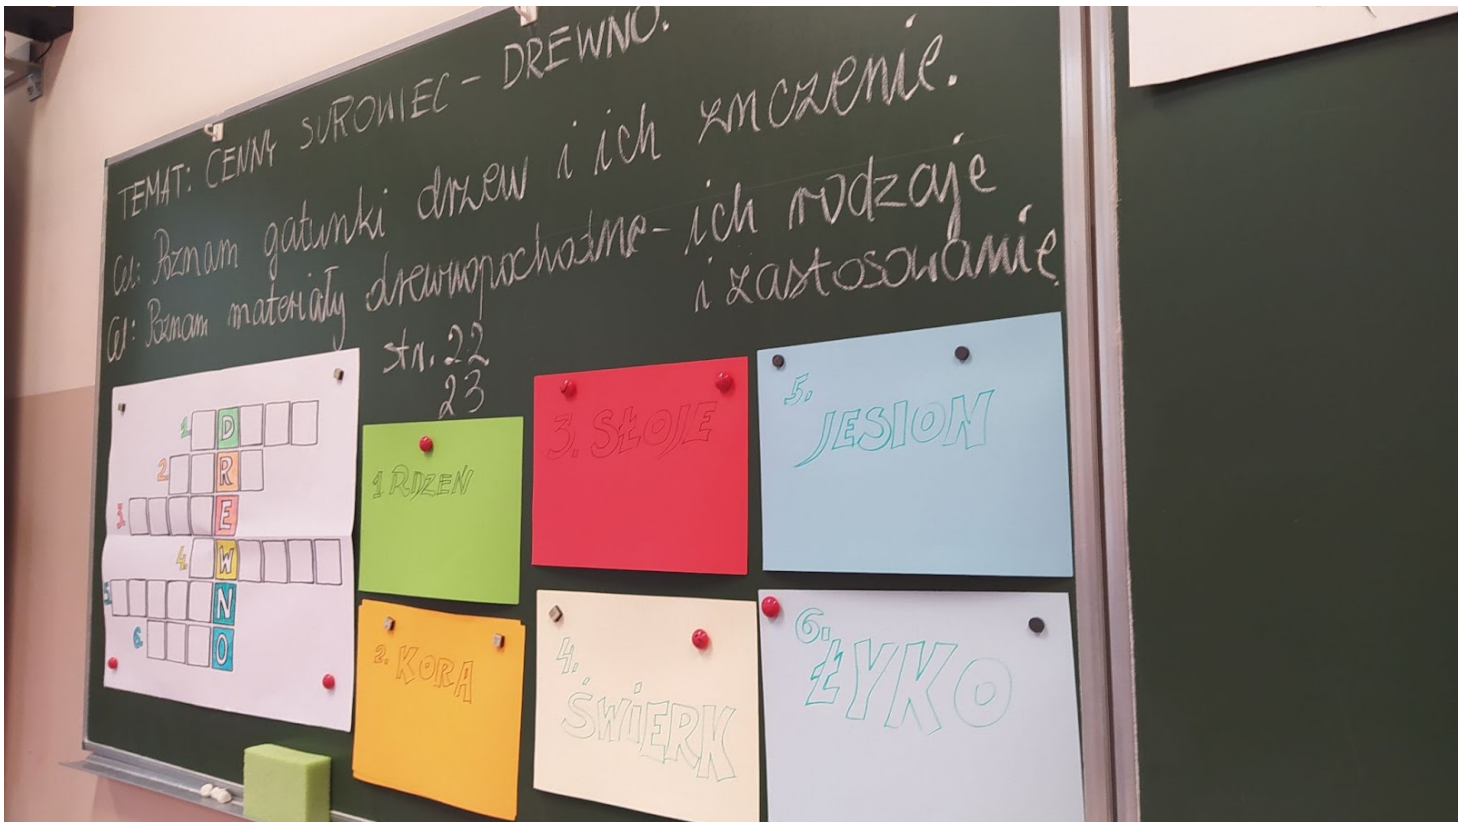 TEMAT: CENNY SUROWIEC - DREWNO.
Cel: Poznam gatunki drzew i ich znczenie.
Cel: Poznam materiały drewnopochodne - ich rodzaje
i zastosowanie.
str. 22
23
1. D
2. R
3. E
4. W
5. N
6. O
1. RDZEŃ
3. SŁOJE
5. JESION
2. KORA
4. ŚWIERK
6. ŁYKO